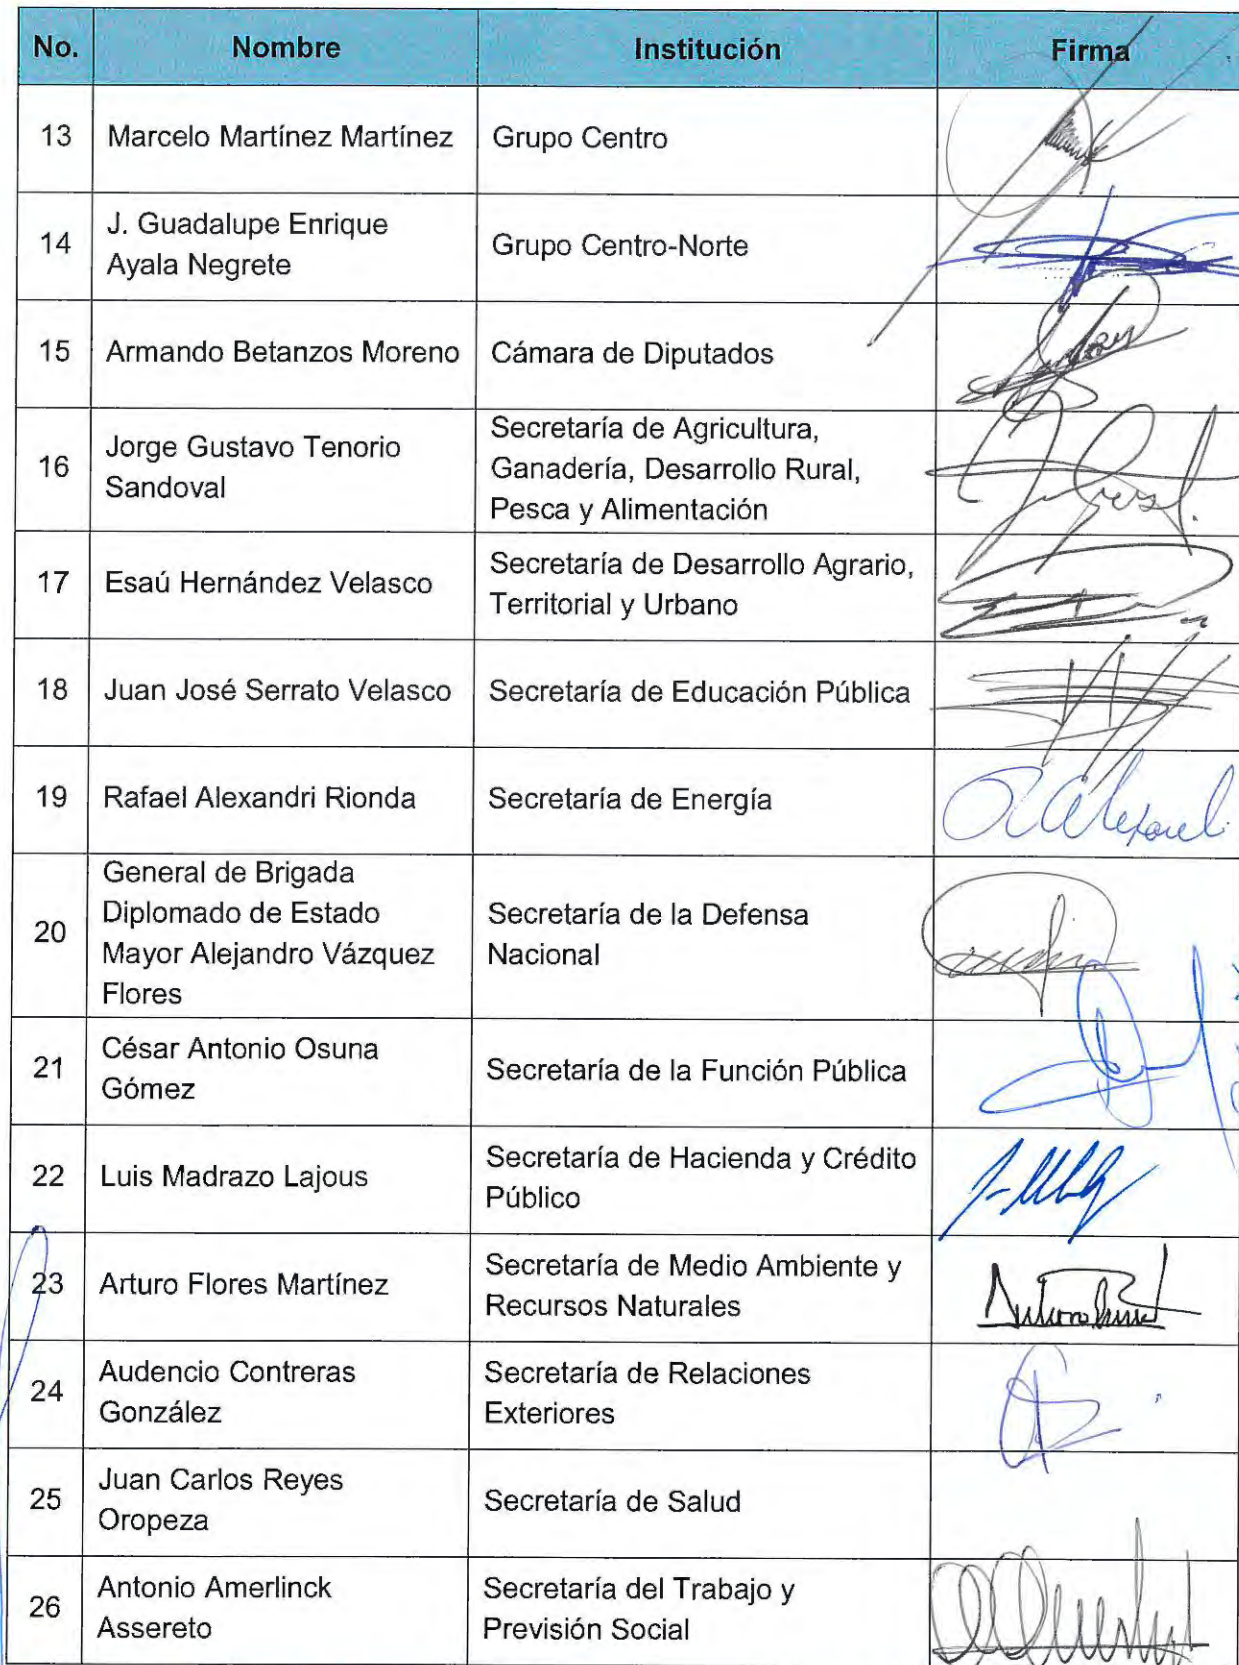 No. Nombre Institución Firma
13 Marcelo Martínez Martínez Grupo Centro
14 J. Guadalupe Enrique
Ayala Negrete Grupo Centro-Norte
15 Armando Betanzos Moreno Cámara de Diputados
16 Jorge Gustavo Tenorio
Sandoval Secretaría de Agricultura,
Ganadería, Desarrollo Rural,
Pesca y Alimentación
17 Esaú Hernández Velasco Secretaría de Desarrollo Agrario,
Territorial y Urbano
18 Juan José Serrato Velasco Secretaría de Educación Pública
19 Rafael Alexandri Rionda Secretaría de Energía
20 General de Brigada
Diplomado de Estado
Mayor Alejandro Vázquez
Flores Secretaría de la Defensa
Nacional
21 César Antonio Osuna
Gómez Secretaría de la Función Pública
22 Luis Madrazo Lajous Secretaría de Hacienda y Crédito
Público
23 Arturo Flores Martínez Secretaría de Medio Ambiente y
Recursos Naturales
24 Audencio Contreras
González Secretaría de Relaciones
Exteriores
25 Juan Carlos Reyes
Oropeza Secretaría de Salud
26 Antonio Amerlinck
Assereto Secretaría del Trabajo y
Previsión Social